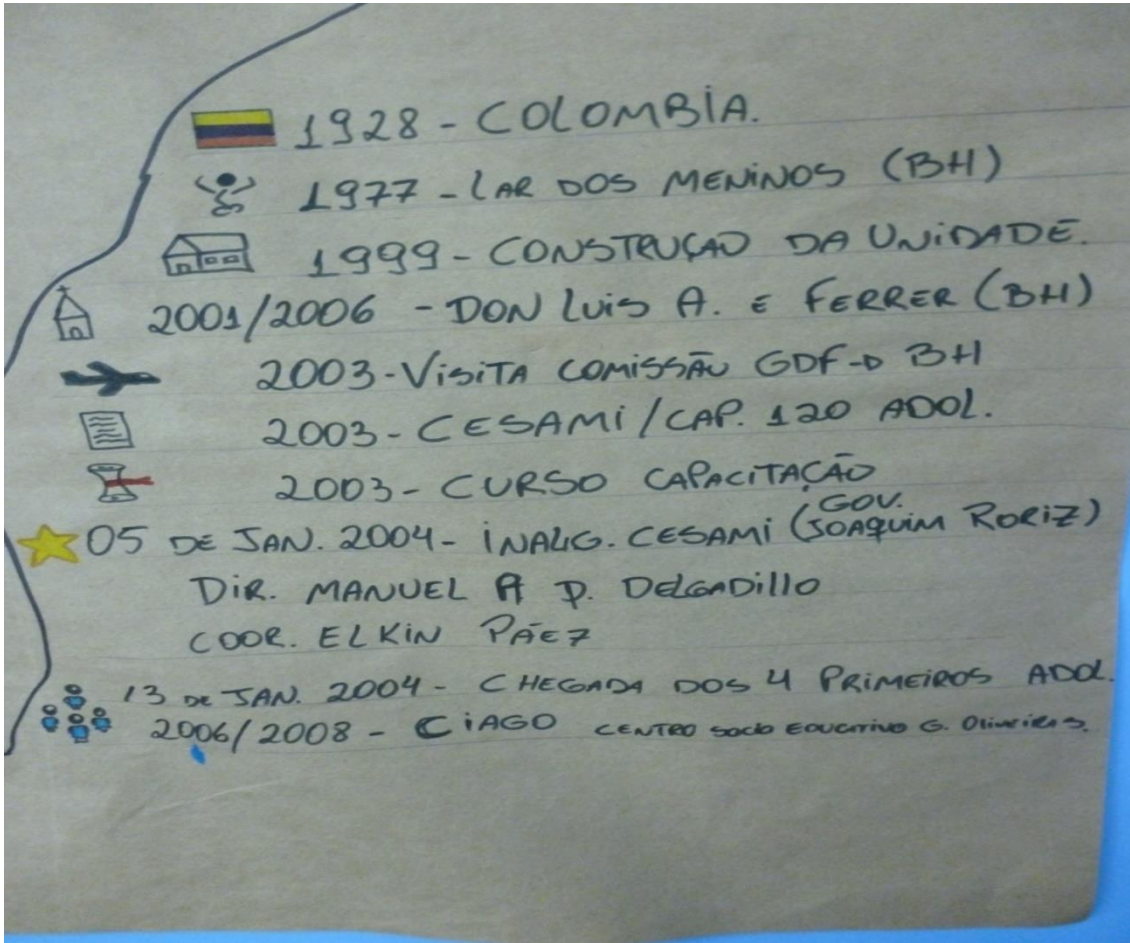 1928 - COLOMBIA.
1977 - LAR DOS MENINOS (BH)
1999 - CONSTRUÇAO DA UNIDADE.
2001/2006 - DON LUIS A. E FERRER (BH)
2003 - VISITA COMISSÃO GDF-D BH
2003 - CESAMI/CAP. 120 ADOL.
2003 - CURSO CAPACITAÇÃO
05 DE JAN. 2004 - INAUG. CESAMI (GOV. JOAQUIM RORIZ)
DIR. MANUEL A P. DELGADILLO
COOR. ELKIN PÁEZ
13 DE JAN. 2004 - CHEGADA DOS 4 PRIMEIROS ADOL.
2006/2008 - CIAGO CENTRO SOCIO EDUCATIVO G.